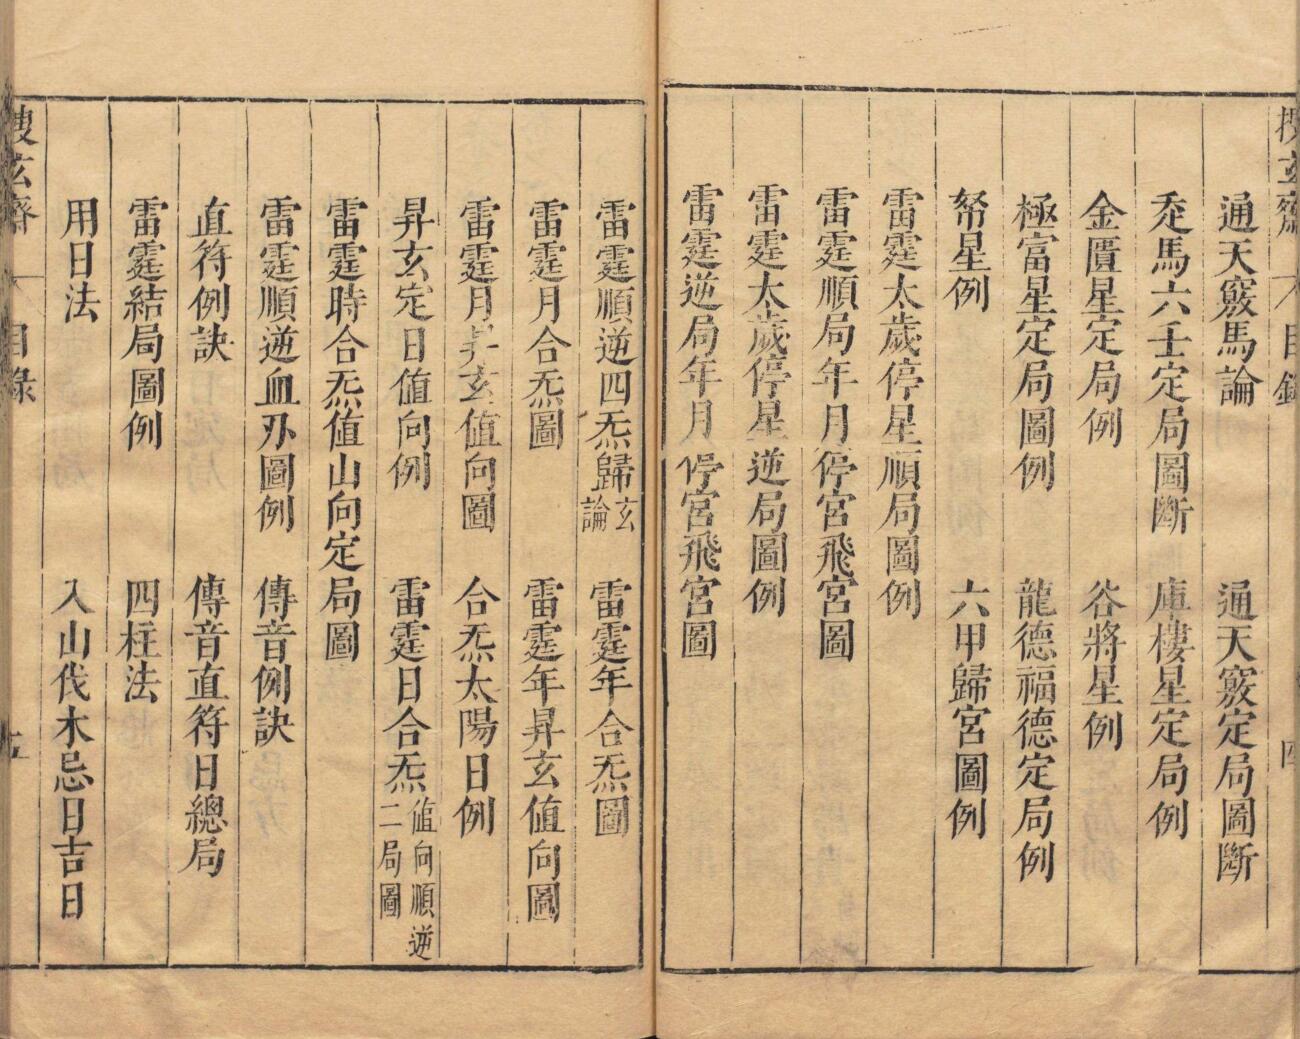 通天竅馬論　通天竅定局圖斷
㐬馬六壬定局圖斷　庫樓星定局例
金匱星定局例　谷將星例
極富星定局圖例　龍德福德定局例
帑星例　六甲歸宮圖例
雷霆太歲停星順局圖例
雷霆順局年月停宮飛宮圖
雷霆太歲停星逆局圖例
雷霆逆局年月停宮飛宮圖
雷霆順逆四炁歸玄論　雷霆年合炁圖
雷霆月合炁圖　雷霆年昇玄值向圖
雷霆月昇玄值向圖　合炁太陽日例
昇玄定日值向例　雷霆日合炁值向順逆二局圖
雷霆時合炁值山向定局圖
雷霆順逆血刃圖例　傳音例訣
直符例訣　傳音直符日總局
雷霆結局圖例　四柱法
用日法　入山伐木忌日吉日
目錄